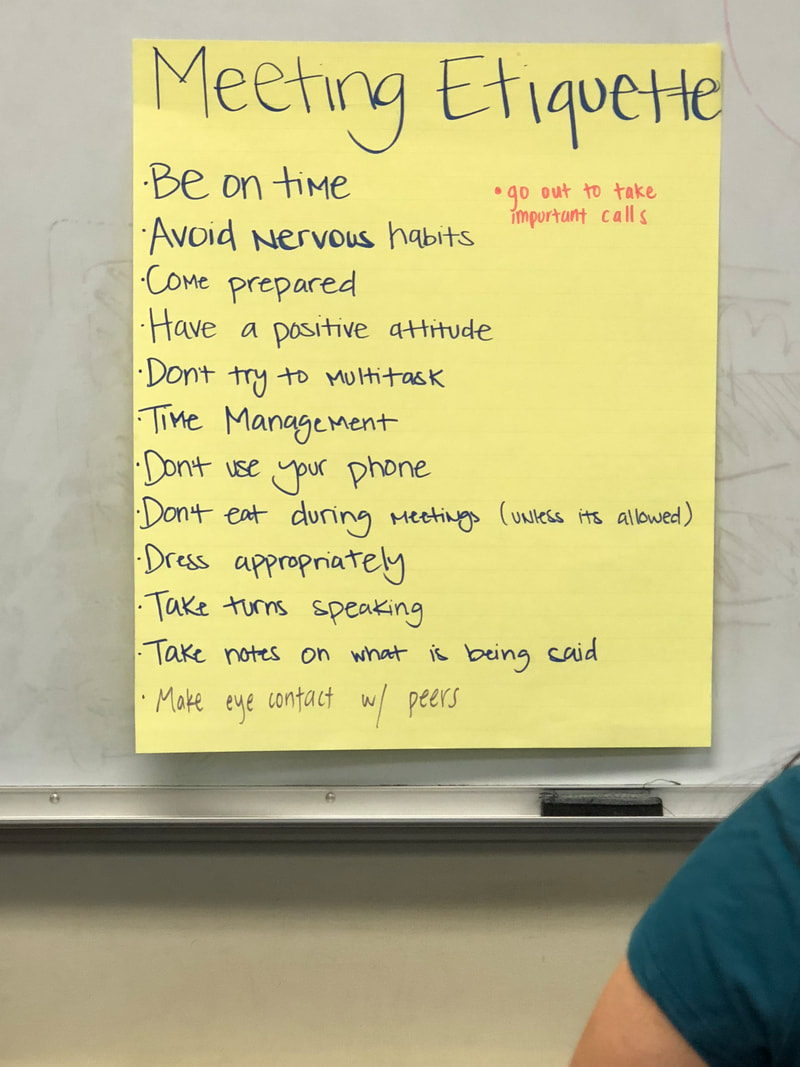 Meeting Etiquette
·Be on time
•go out to take
important calls
·Avoid nervous habits
·Come prepared
·Have a positive attitude
·Don't try to multitask
·Time Management
·Don't use your phone
·Don't eat during meetings (unless its allowed)
·Dress appropriately
·Take turns speaking
·Take notes on what is being said
·Make eye contact w/ peers